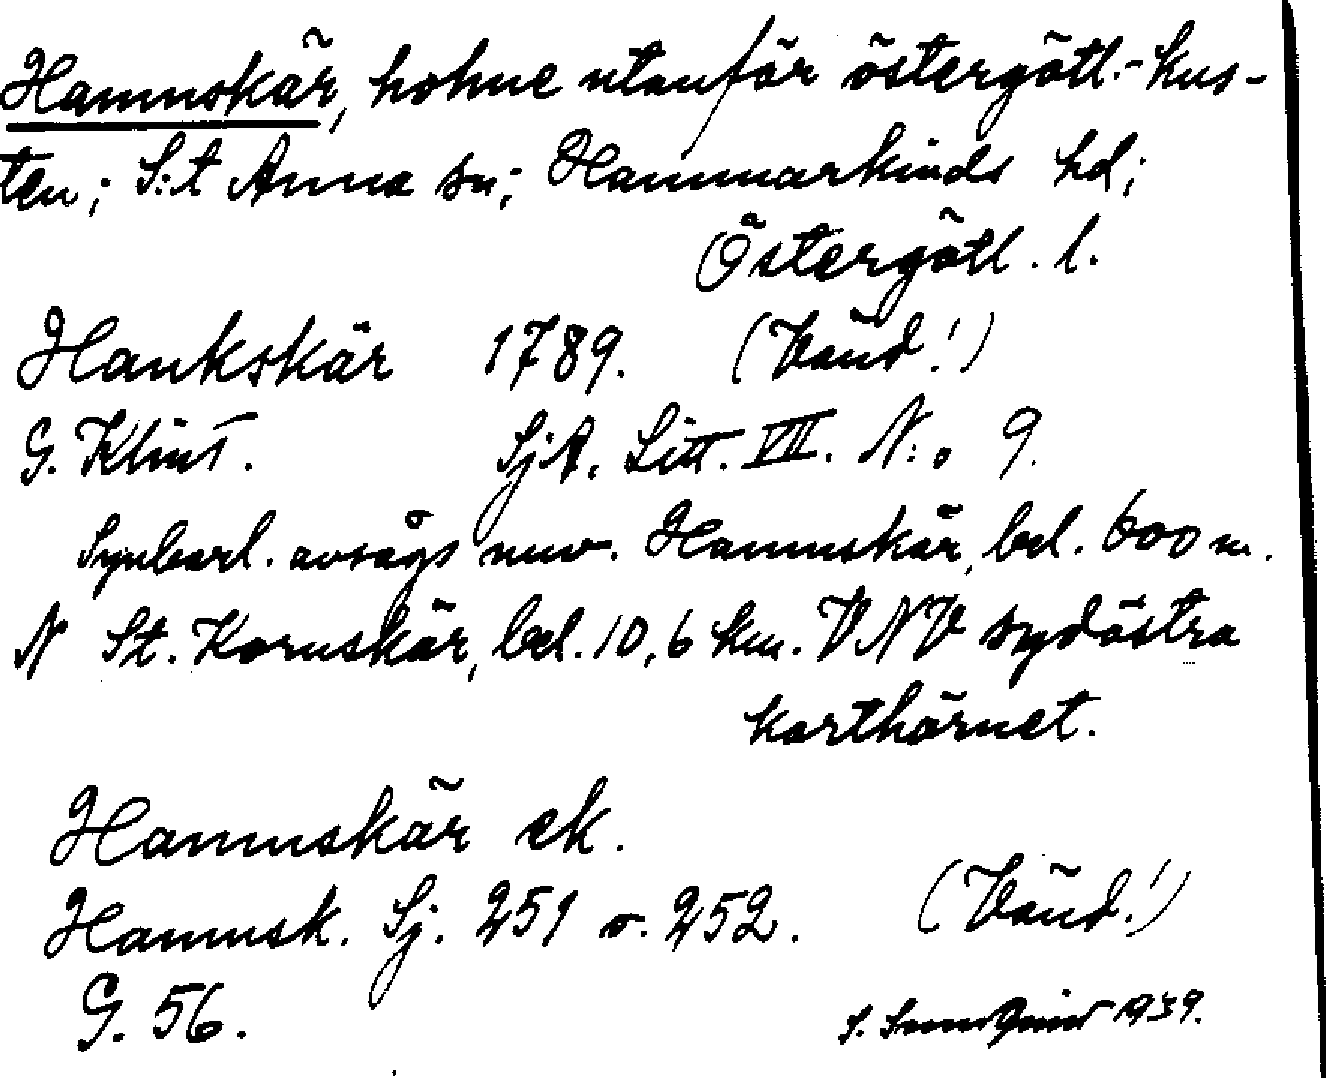 Hamnskär, holme utanför östergötl.-kus-
ten; S:t Anna sn; Hammarkinds hd;
Östergötl. l.
Hankskär 1789. (Vänd!)
G. Klint. SjA. Litt. VII. N:o 9.
Synbarl. avsågs nuv. Hamnskär, bel. 600 m.
N St. Kornskär, bel. 10,6 km. VNV sydöstra
karthörnet.
Hamnskär ek.
Hamnsk. Sj. 251 o. 252. (Vänd!)
G. 56.
1939.